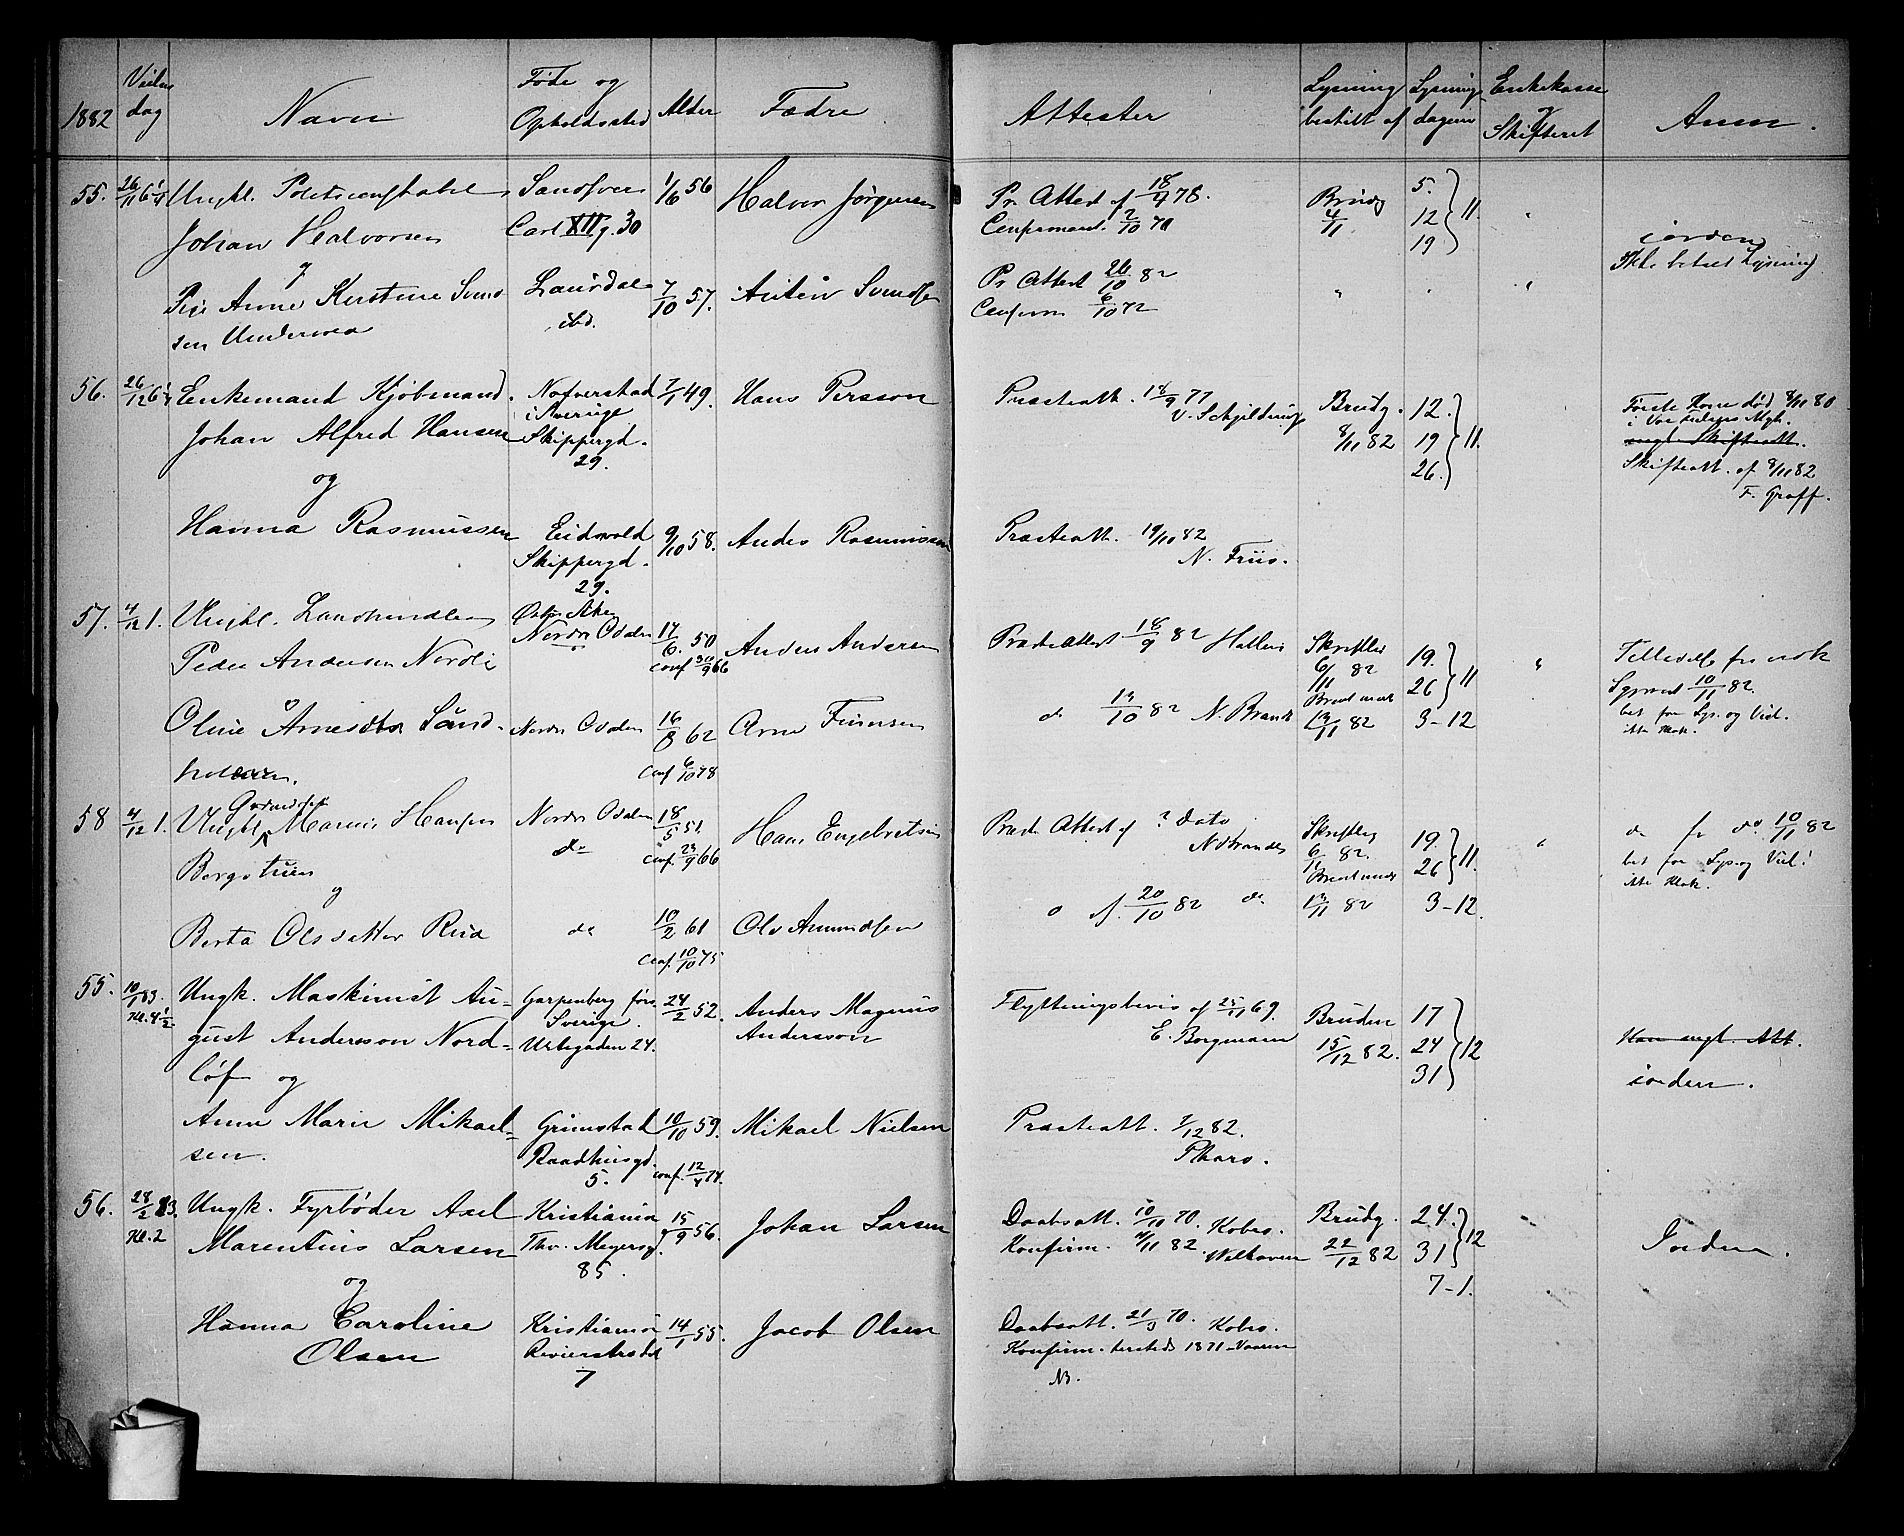 1882 Viels dag Navn Føde og Opholdssted Alder Fædre Attester Lysning bestilt af Lysning dagene Enkekasse og Skifteret Anm.
55. 26/11 6 1/4 Ungkl. Politiconstabel Sandsver 1/6 56 Halvor Jørgensen Pr. Attest af 18/4 78. Brudg 5.
Johan Halvorsen Carl XII g. 30 Confirmeret 2/10 70 4/11 12 } 11.
og 19 iorden
Pige Anne Kirstine Svend Laurdal 7/10 57. Anton Svendsen Pr Attest 26/10 82 Ikke betalt Lysning
sen ibd. Confirm 6/10 72
56. 26/12 6 Enkemand Kjøbmand i Sverige 7/1 49. Hans Persson Præsteatt. 18/9 77 Brudg. 12. Første Kone død 8/11 80
Johan Alfred Hansen Skippergd. 29. V. Schjelderup 8/11 82 19 } 11.
og 26. Skifteatt. af 8/11 82
F. Graff.
Hanna Rasmussen Eidsvold 9/10 58. Andes Rasmussen Præsteatt. 19/10 82
Skippergd. 29. N. Friis.
57. 4/12 1. Ungkl. Landhandler Nordre Odalen 17/6. 50 Anders Andersen Præsteattest 18/9 82 Skriftlig 19. Tilladelse fra
Peder Andersen Nordli conf 30/9 66 6/11 82 26 } 11 10/11 82.
Oline Arnesdtr Sand- Nordre Odalen 16/8 62 Arne Finnsen do 13/10 82 N. Brandt 13/11 82 3-12 bet for Lys. og Viel.
holmen. conf 6/10 78 ikke Klok.
58 4/12 1. Ungkl Gaardmand Marius Hansen Nordre Odalen 18/5 51. Hans Engebretsen Præste Attest af ? Dato Skriftlig 19. do fr do 10/11 82
Bergstuen do conf. 29/9 66 6/11 82. 26 } 11. bet for Lys. og Viel.
og ikke Klok.
Berta Olsdatter Rud do 10/2 61 Ole Amundsen o af 20/10 82 do 13/11 82 3-12.
conf. 10/10 75
55. 10/1 83. Ungk. Maskinist Au- Garpenberg förs. 24/2 52. Anders Magnus Flyttningsbevis af 25/11 69. Bruden 17
Kl. 4 1/2 gust Andersson Nord- Sverige. Andersson E. Borgmann 15/12 82. 24 } 12 Han mgl. Att.
löf og Urtegaden 24. 31 iorden.
Anne Marie Mikael- Grimstad 10/10 59. Mikael Nielsen Præsteatt. 7/12 82.
sen. Raadhusgd. 5. conf. 12/4 74. Pharo.
56. 28/2 83. Ungk. Fyrbøder Axel Kristiania 15/9 56. Johan Larsen Daabsatt. 10/10 70. Kobro. Brudg. 24.
Kl. 2 Marentius Larsen Thv. Meyersg. 85. Konfirm. 4/11 82. Welhaven 22/12 82 31 } 12 Iorden.
og 7-1.
Hanna Caroline Kristiania 14/1 55. Jacob Olsen Daabsatt. 21/3 70. Kobro.
Olsen Revierstrædet 7 Konfirm. 1871 Vaaren
NB.